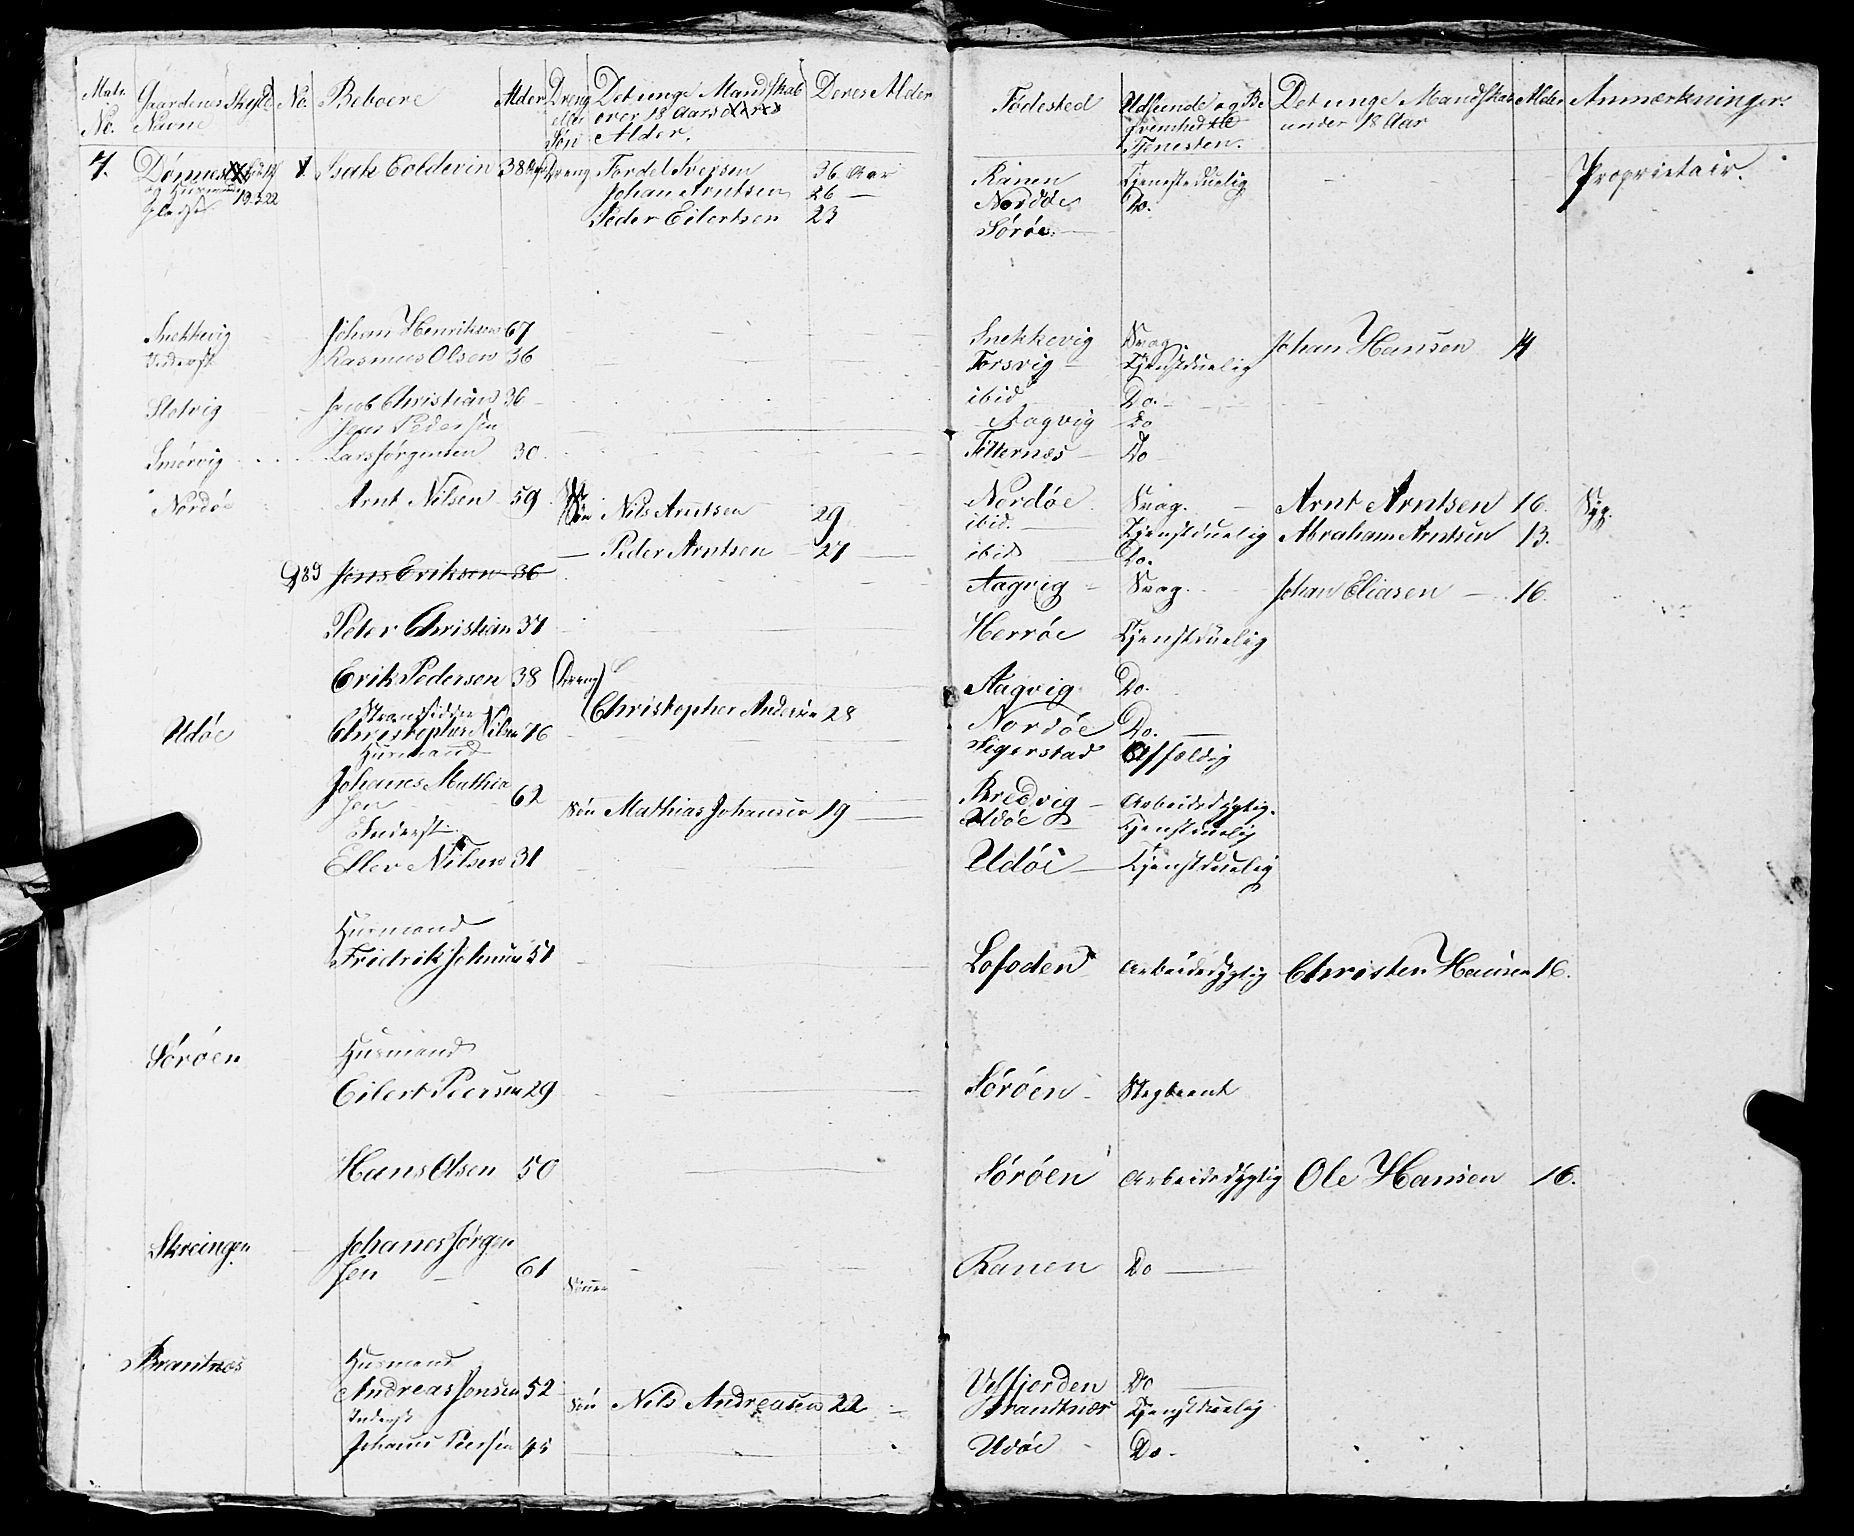 Matr No. Gaardenes Navne Skyld No. Beboere Alder Dreng eller Søn Det unge Mandskab over 18 Aars Alder. Deres Alder
7. Dønnes 1 Isak Coldevin 38 Dreng Tordel Iversen 36 Aar
Johan Arntsen 26 —
Peder Eilertsen 23
Snekkevig Johan Henriksen 67
Inderst Rasmus Olsen 36
Slotvig Jacob Christian 36
Jens Pedersen
Smørvig Lars Jørgensen 30
Nordøe Arnt Nilsen 59 Søn Nils Arntsen 29
— Peder Arntsen 27
Jens Eriksen 36
Peter Christian 37
Erik Pedersen 38 Dreng
Strandsidder Christopher Andersen 28
Udøe Christopher Nilsen 76
Husmand
Johanes Mathia
sen 62 Søn Mathias Johansen 19
Inderst
Ellev Nilsen 31
Husmand
Fridrik Johnsen 51
Sørøen Husmand
Eilert Peersen 29
Hans Olsen 50
Skreingen Johanes Jørgen
sen 61
Brantnæs Husmand
Andreas Jonsen 52 Søn Nils Andreasen 22
Inderst
Johanes Peersen 45
Fødested Udseende og Be qvemhed til Tjenesten. Det unge Mandskab under 18 Aar Alder Anmærkninger
Ranen Tjenestduelig Proprietair.
Nordøe Do.
Sørøe.
Snekkevig Svag. Johan Hansen 14
Torsvig Tjenstduelig
ibid Do.
Aagvig Do
Titternæs Do
Nordøe Svag. Arnt Arntsen 16. Syg.
ibid. Tjenstduelig Abraham Arntsen 13.
ibid Do.
Aagvig Svag. Johan Eliasen 16.
Herrøe Tjenstduelig
Aagvig Do.
Nordøe Do.
Tegerstad Affældig
Bredvig Arbeidsdygtig.
Udøe Tjenstduelig
Udøe Tjenstduelig
Lofoden Arbeidsdygtig Christen Hansen 16.
Sørøen
Sørøen Arbeidsdygtig Ole Hansen 16.
Ranen Do
Velfjorden Do
Brandtnæs Tjenstduelig
Udøe Do.